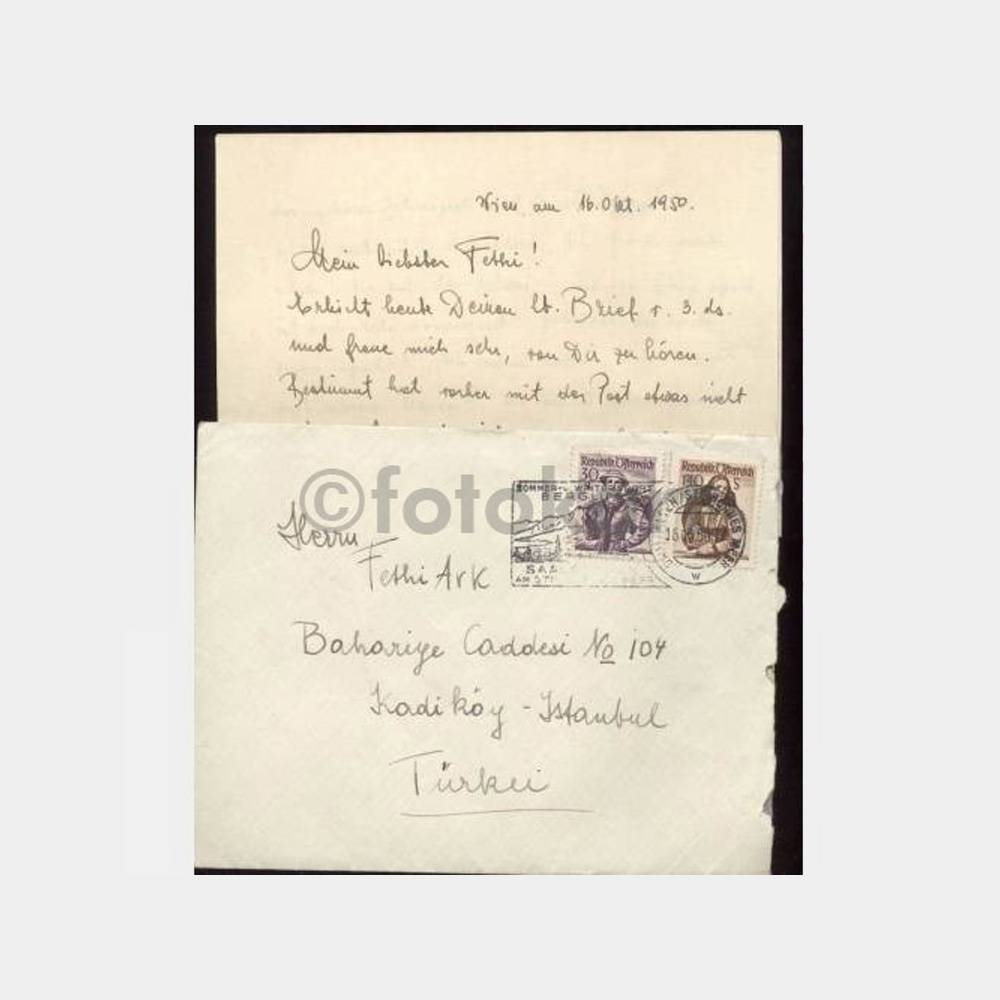 Wien am 16. Okt. 1950.
Mein liebster Fethi!
Erhielt heute Deinen lb. Brief v. 3. ds.
und freue mich sehr, von Dir zu hören.
Bestimmt hat vorher mit der Post etwas nicht
©fotok
Republik Österreich
30
Republik Österreich
1.70 S
SOMMER-U. WINTER
BERGL
SAA
AM ST
W
Herrn
Fethi Ark
Bahariye Caddesi No 104
Kadiköy - Istanbul
Türkei